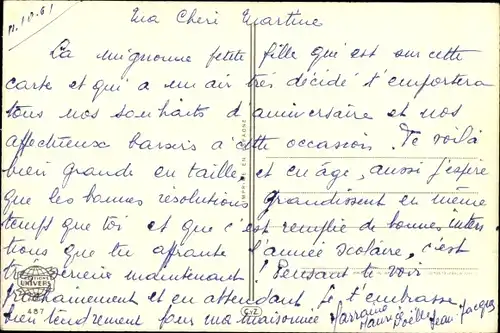 11.10.61
Ma Cheri Martine
La mignonne petite fille qui est sur cette
carte et qui a un air très décidé t'emportera
tous nos souhaits d'anniversaire et nos
affectueux baisers à cette occasion. Te voilà
bien grande en taille, et en âge, aussi j'espère
que les bonnes résolutions grandissent en même
temps que toi et que c'est remplie de bonnes inten
tions que tu affrontes l'année scolaire, c'est
très sérieux maintenant! Pensant te voir
prochainement et en attendant je t'embrasse
bien tendrement pour ma maisonnée
Marraine
Maurice Joëlle Jean-Jacques
UNIVERS
487
CYZ